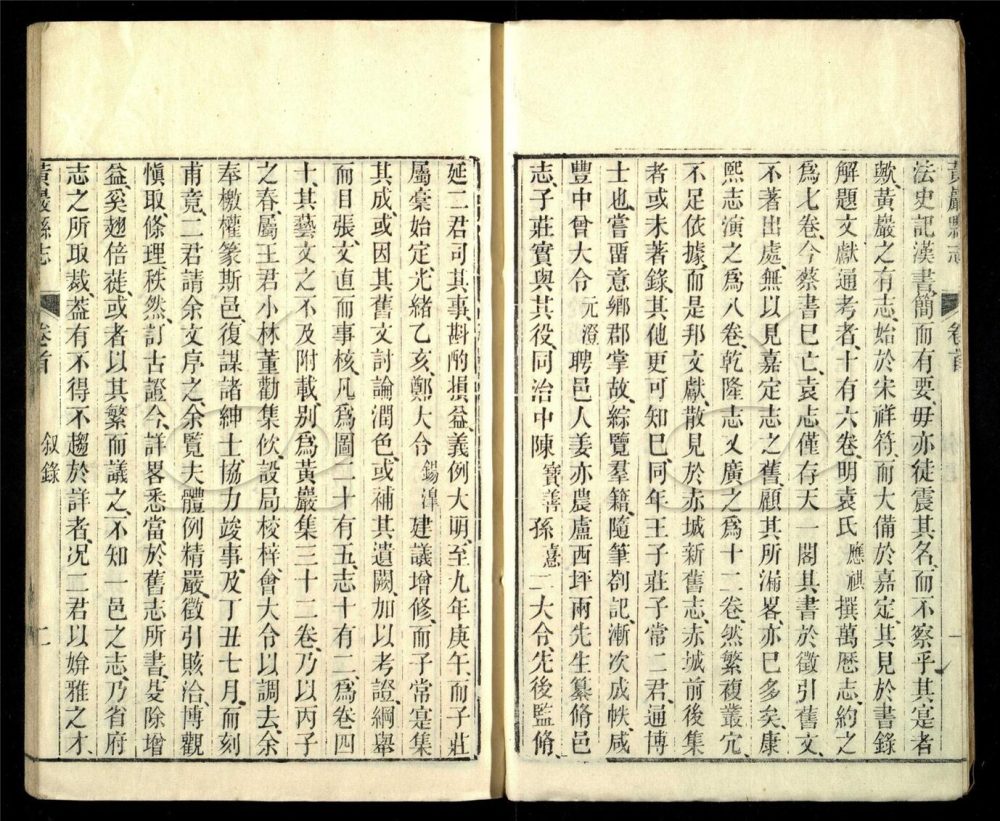 黃巖縣志
卷首
一
法史記漢書簡而有要毋亦徒震其名而不察乎其寔者
歟黃巖之有志始於宋祥符而大備於嘉定其見於書錄
解題文獻通考者十有六卷明袁氏應祺撰萬厯志約之
爲七卷今蔡書已亡袁志僅存天一閣其書於徵引舊文
不著出處無以見嘉定志之舊顧其所漏畧亦已多矣康
熙志演之爲八卷乾隆志又廣之爲十二卷然繁複叢冗
不足依據而是邦文獻散見於赤城新舊志赤城前後集
者或未著錄其他更可知已同年王子莊子常二君通博
士也嘗畱意鄉郡掌故綜覽羣籍隨筆劄記漸次成帙咸
豐中曾大令元澄聘邑人姜亦農盧西坪兩先生纂脩邑
志子莊實與其役同治中陳寶善孫憙二大令先後監脩
延二君司其事斟酌損益義例大明至九年庚午而子莊
屬稾始定光緒乙亥鄭大令錫滜建議增修而子常寔集
其成或因其舊文討論潤色或補其遺闕加以考證綱舉
而目張文直而事核凡爲圖二十有五志十有二爲卷四
十其藝文之不及附載别爲黃巖集三十二卷乃以丙子
之春屬王君小林董勸集佽設局校梓會大令以調去余
奉檄權篆斯邑復謀諸紳士協力竣事及丁丑七月而刻
甫竟二君請余文序之余覧夫體例精嚴徵引賅洽博觀
愼取條理秩然訂古證今詳畧悉當於舊志所書芟除增
益奚翅倍蓰或者以其繁而議之不知一邑之志乃省府
志之所取裁葢有不得不趨於詳者况二君以媕雅之才
黃巖縣志
卷首
叙錄
二